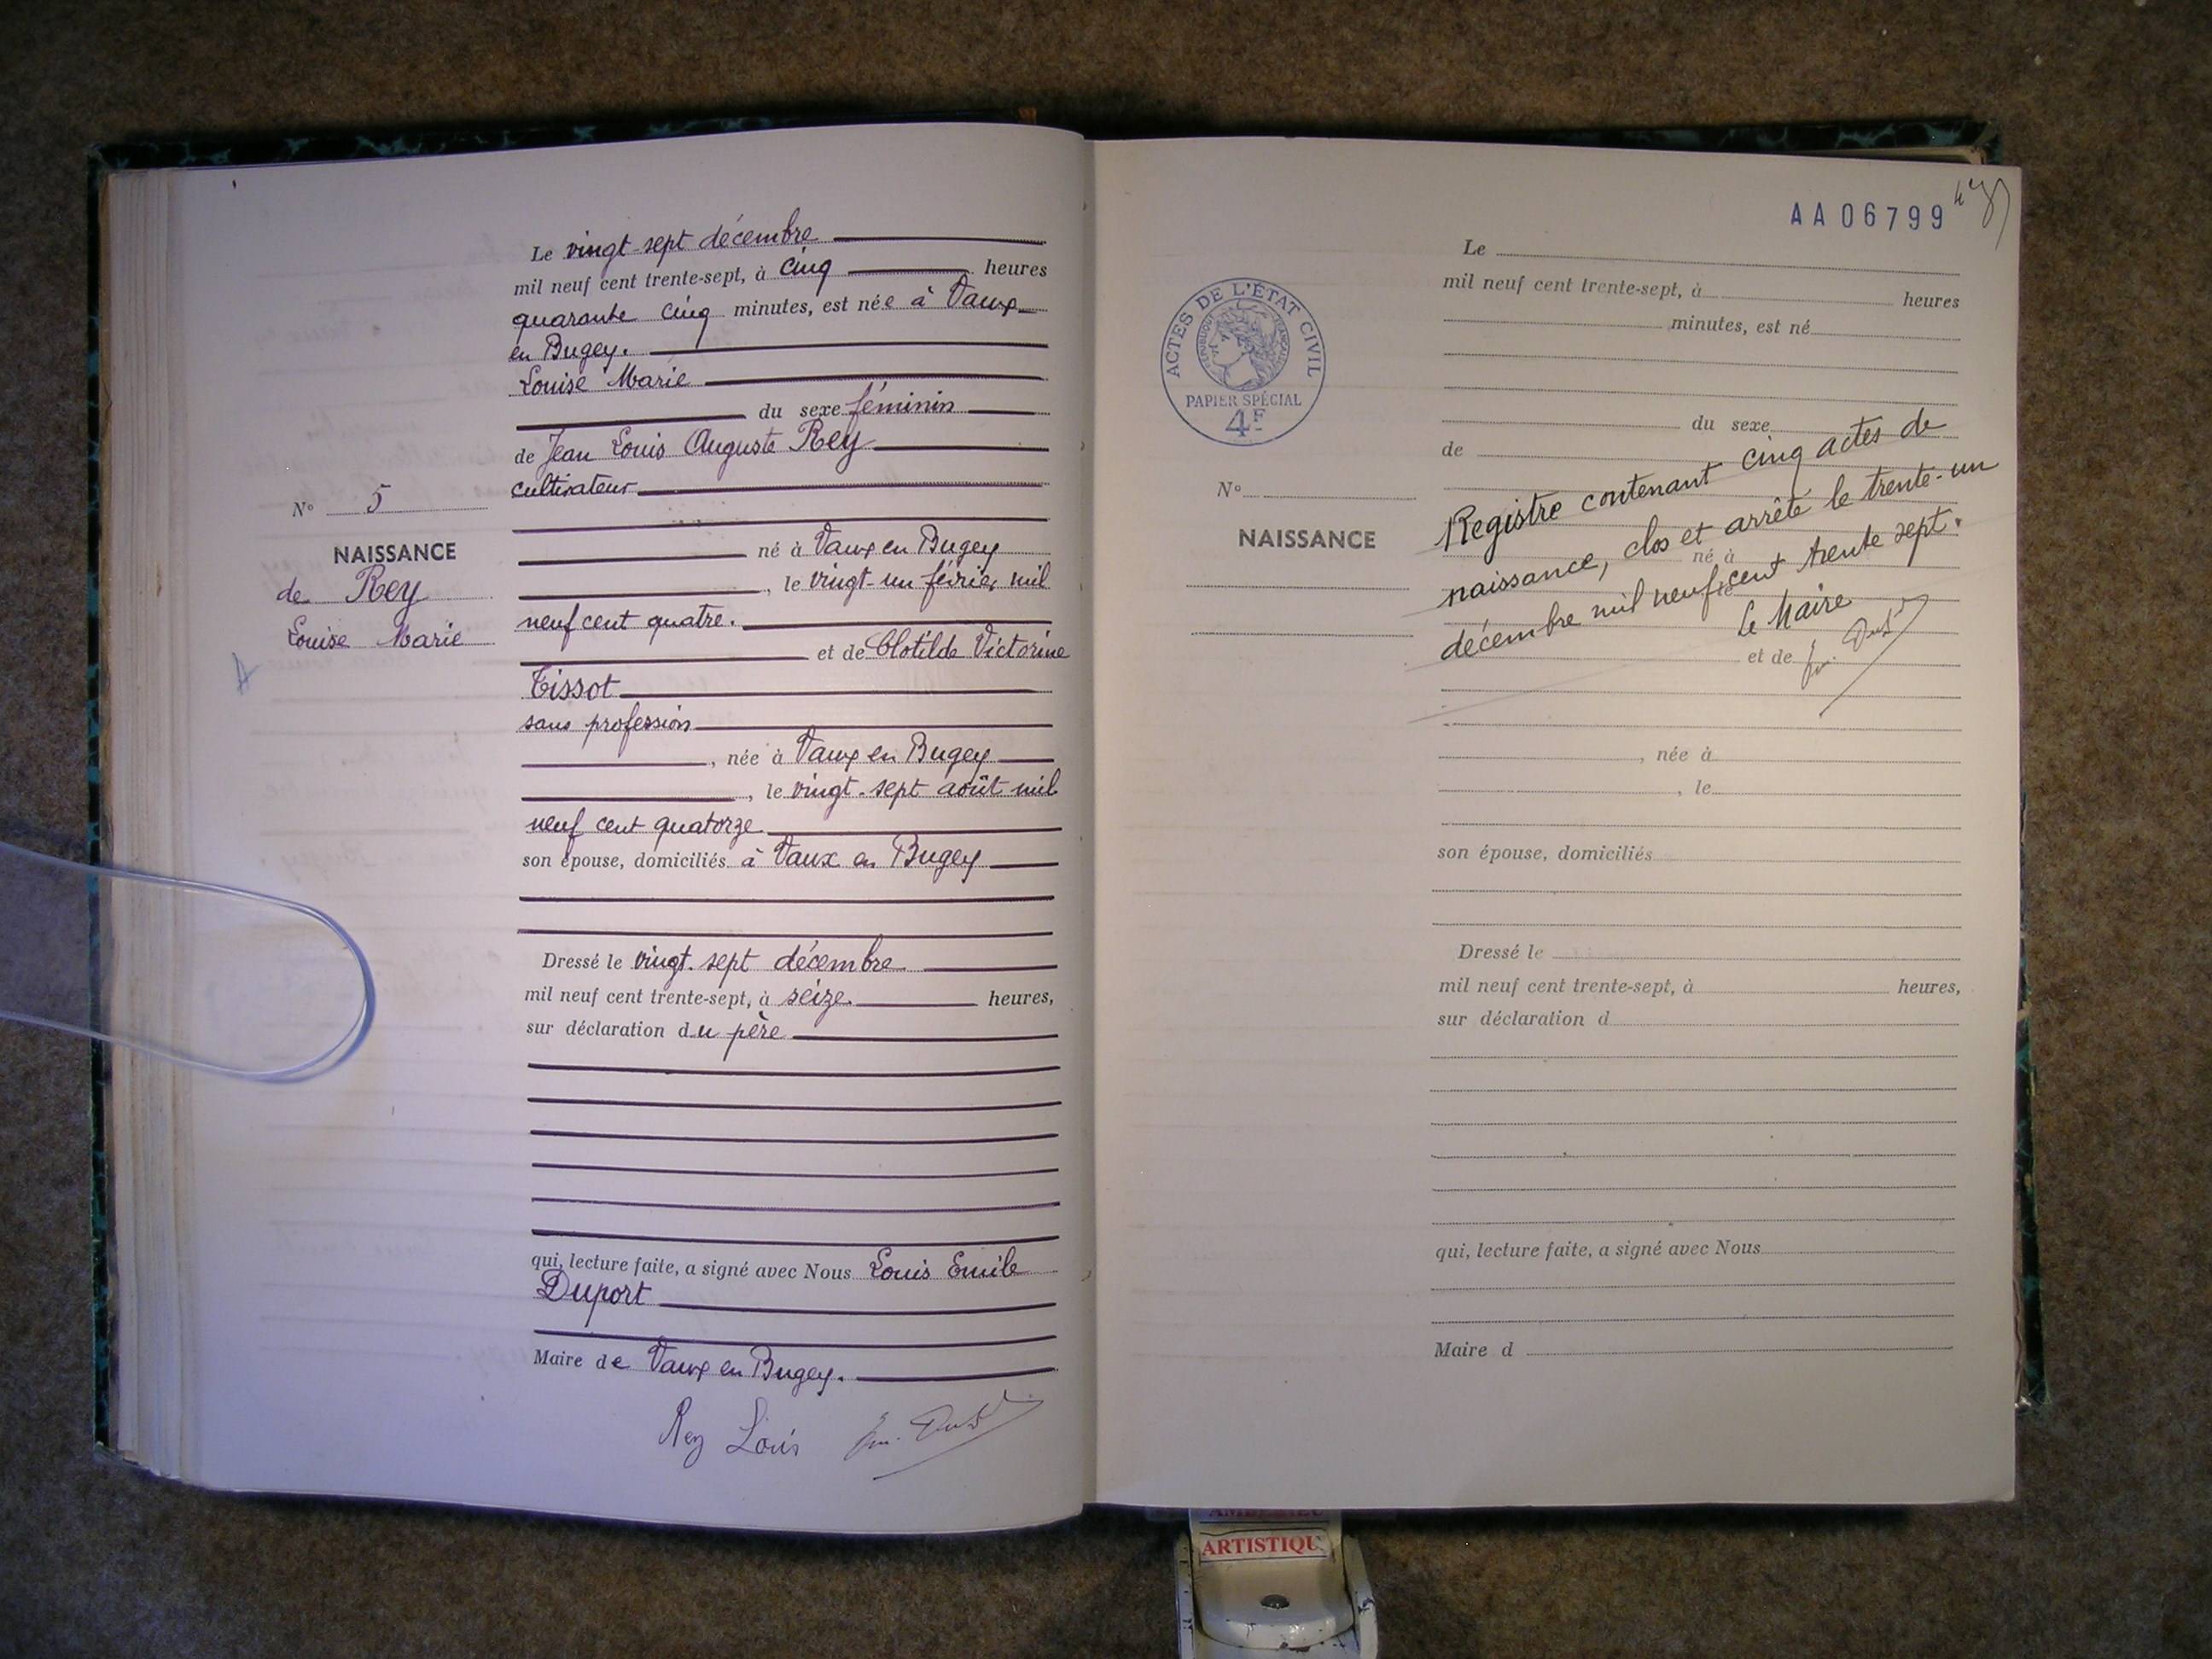 Le vingt-sept décembre
mil neuf cent trente-sept, à cinq heures
quarante cinq minutes, est née à Vaux
en Bugey.
Louise Marie
du sexe féminin
de Jean Louis Auguste Rey
cultivateur
né à Vaux en Bugey
, le vingt-un février mil
neuf cent quatre.
et de Clotilde Victorine
Tissot
sans profession
, née à Vaux en Bugey
, le vingt-sept août mil
neuf cent quatorze
son épouse, domiciliés à Vaux en Bugey
Dressé le vingt-sept décembre
mil neuf cent trente-sept, à seize heures,
sur déclaration du père
qui, lecture faite, a signé avec Nous Louis Emile
Duport
Maire de Vaux en Bugey.
Rey Louis
N° 5
NAISSANCE
de Rey
Louise Marie
A
AA06799
ACTES DE L'ÉTAT CIVIL
RÉPUBLIQUE FRANÇAISE
PAPIER SPÉCIAL
4F
N°
NAISSANCE
Le
mil neuf cent trente-sept, à heures
minutes, est né
du sexe
de
Registre contenant cinq actes de
naissance, clos et arrêté le trente-un
décembre mil neuf cent trente sept.
Le Maire
né à
le
et de
, née à
, le
son épouse, domiciliés
Dressé le
mil neuf cent trente-sept, à heures,
sur déclaration d
qui, lecture faite, a signé avec Nous
Maire d
ARTISTIQU